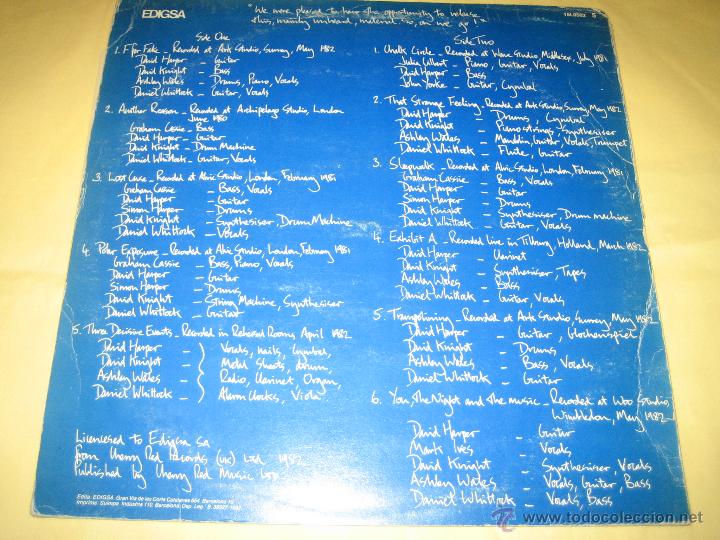 EDIGSA
"We were pleased to have the opportunity to release
this, mainly unheard, material. So, on we go!"
Side One
1. F for Fake - Recorded at Ark Studio, Surrey, May 1982
David Harper - Guitar
David Knight - Bass
Ashley Wales - Drums, Piano, Vocals
Daniel Whittock - Guitar, Vocals
2. Another Reason - Recorded at Archipelago Studio, London
June 1980
Graham Cassie - Bass
David Harper - Guitar
David Knight - Drum Machine
Daniel Whittock - Guitar, Vocals
3. Lost Cause - Recorded at Alvic Studio, London, February 1981
Graham Cassie - Bass, Vocals
David Harper - Guitar
Simon Harper - Drums
David Knight - Synthesiser, Drum Machine
Daniel Whittock - Vocals
4. Polar Exposure - Recorded at Alvic Studio, London, February 1981
Graham Cassie - Bass, Piano, Vocals
David Harper - Guitar
Simon Harper - Drums
David Knight - String Machine, Synthesiser
Daniel Whittock - Guitar
5. Three Decisive Events - Recorded in Rehearsal Room, April 1982
David Harper - Vocals, nails, Cymbal,
David Knight - Metal Sheets, drum,
Ashley Wales - Radio, Clarinet, Organ,
Daniel Whittock - Alarm Clocks, Viola
Licensed to Edigsa sa
from Cherry Red Records (UK) Ltd 1982
Published by Cherry Red Music
Edita: EDIGSA Gran Via de les Corts Catalanes 654 Barcelona 10
Side Two
1. Chalk Circle - Recorded at Wave Studio, Middlesex, July 1981
Julia Gilbert - Piano, Guitar, Vocals
David Harper - Bass
John Yorke - Guitar, Cymbal
2. That Strange Feeling - Recorded at Ark Studio, Surrey, May 1982
David Harper - Drums, Cymbal
David Knight - Piano strings, Synthesiser
Ashley Wales - Mandolin, Guitar, Vocals, Trumpet
Daniel Whittock - Flute, Guitar
3. Sleepwalk - Recorded at Alvic Studio, London, February 1981
Graham Cassie - Bass, Vocals
David Harper - Guitar
Simon Harper - Drums
David Knight - Synthesiser, Drum machine
Daniel Whittock - Guitar, Vocals
4. Exhibit A - Recorded live in Tilburg, Holland, March 1982
David Harper - Clarinet
David Knight - Synthesiser, Tapes
Ashley Wales - Bass
Daniel Whittock - Guitar, Vocals
5. Trampolining - Recorded at Ark Studio, Surrey, May 1982
David Harper - Guitar, Glockenspiel
David Knight - Drums
Ashley Wales - Bass, Vocals
Daniel Whittock - Guitar
6. You, The Night and The Music - Recorded at Woo Studio,
Wimbledon, May 1982
David Harper - Guitar
Mark Ives - Vocals
David Knight - Synthesiser, Vocals
Ashley Wales - Vocals, Guitar, Bass
Daniel Whittock - Vocals, Bass
todocoleccion
www.todocoleccion.net